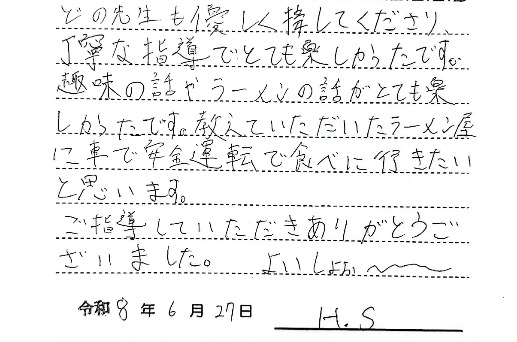 どの先生も優しく接してくださり、
丁寧な指導でとても楽しかったです。
趣味の話やラーメンの話がとても楽
しかったです。教えていただいたラーメン屋
に車で安全運転で食べに行きたい
と思います。
ご指導していただきありがとうご
ざいました。 よいしょぉ〜〜〜
令和8年6月27日 H.S